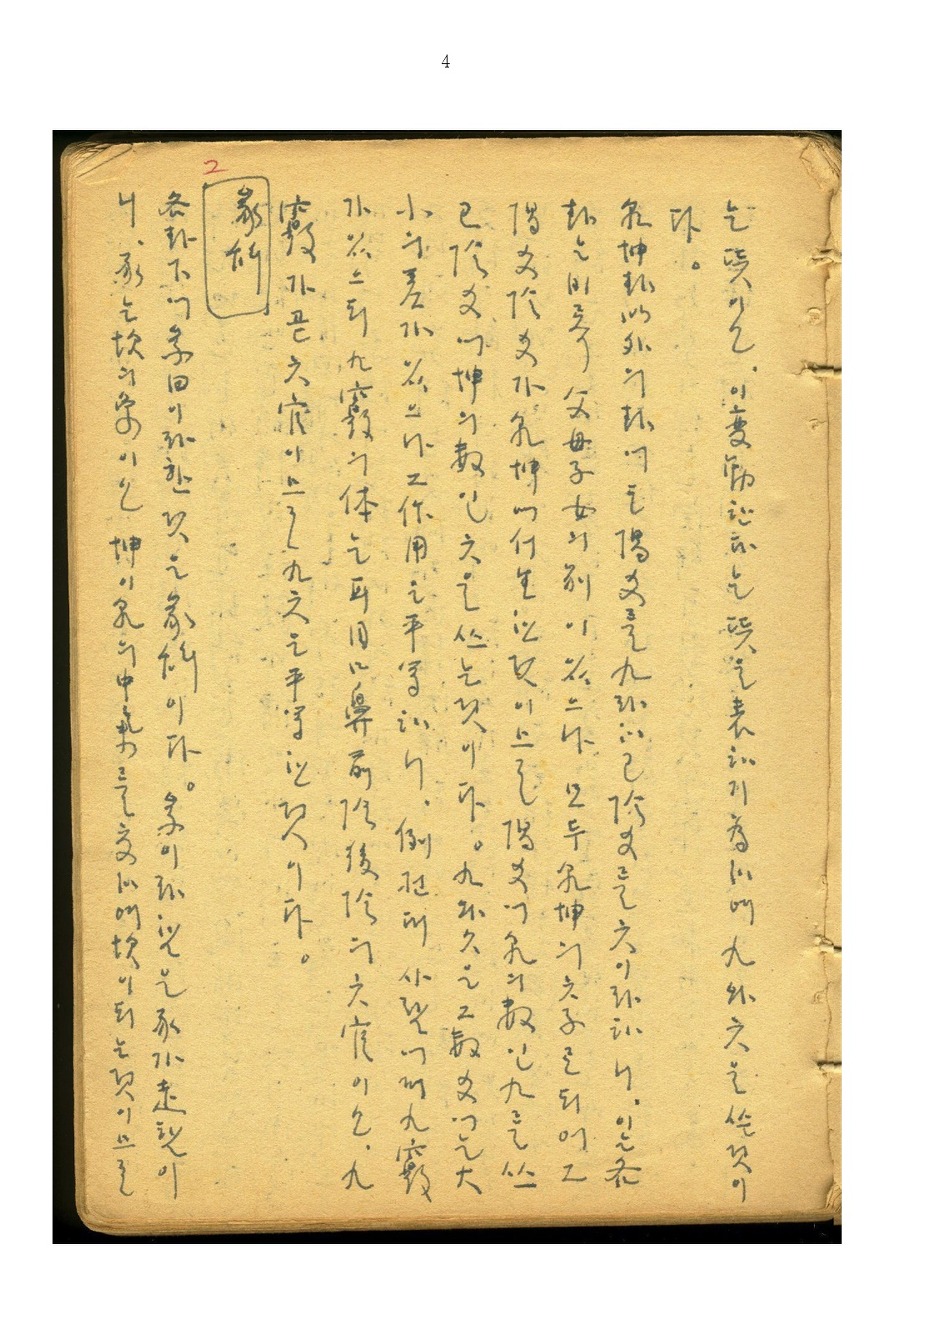 4
는 뜻이오. 이 變動한다는 뜻을 表하기 爲하야 九와 六을 쓴 것이
다。
乾坤卦以外의 卦에도 陽爻를 九라 하고 陰爻를 六이라 하니, 이는 各
卦는 비록 父母子女의 別이 있으나 모두 乾坤의 六子로 되어 그
陽爻陰爻가 乾坤에서 生한 것이므로 陽爻에 乾의 數인 九를 쓰
고 陰爻에 坤의 數인 六을 쓰는 것이다。九와 六은 그 數爻에는 大
小의 差가 있으나 그 作用은 平等하니, 例컨대 사람에게 九竅
가 있으되 九竅의 体는 耳目口鼻前陰後陰의 六官이오, 九
竅가 곧 六官이므로 九六은 平等한 것이다。
2
彖辭
各卦下에 彖曰이라 한 것은 彖辭이다。彖이라 함은 豕가 走함이
니, 豕는 坎의 象이오 坤이 乾의 中氣를 交하야 坎이 되는 것이므로